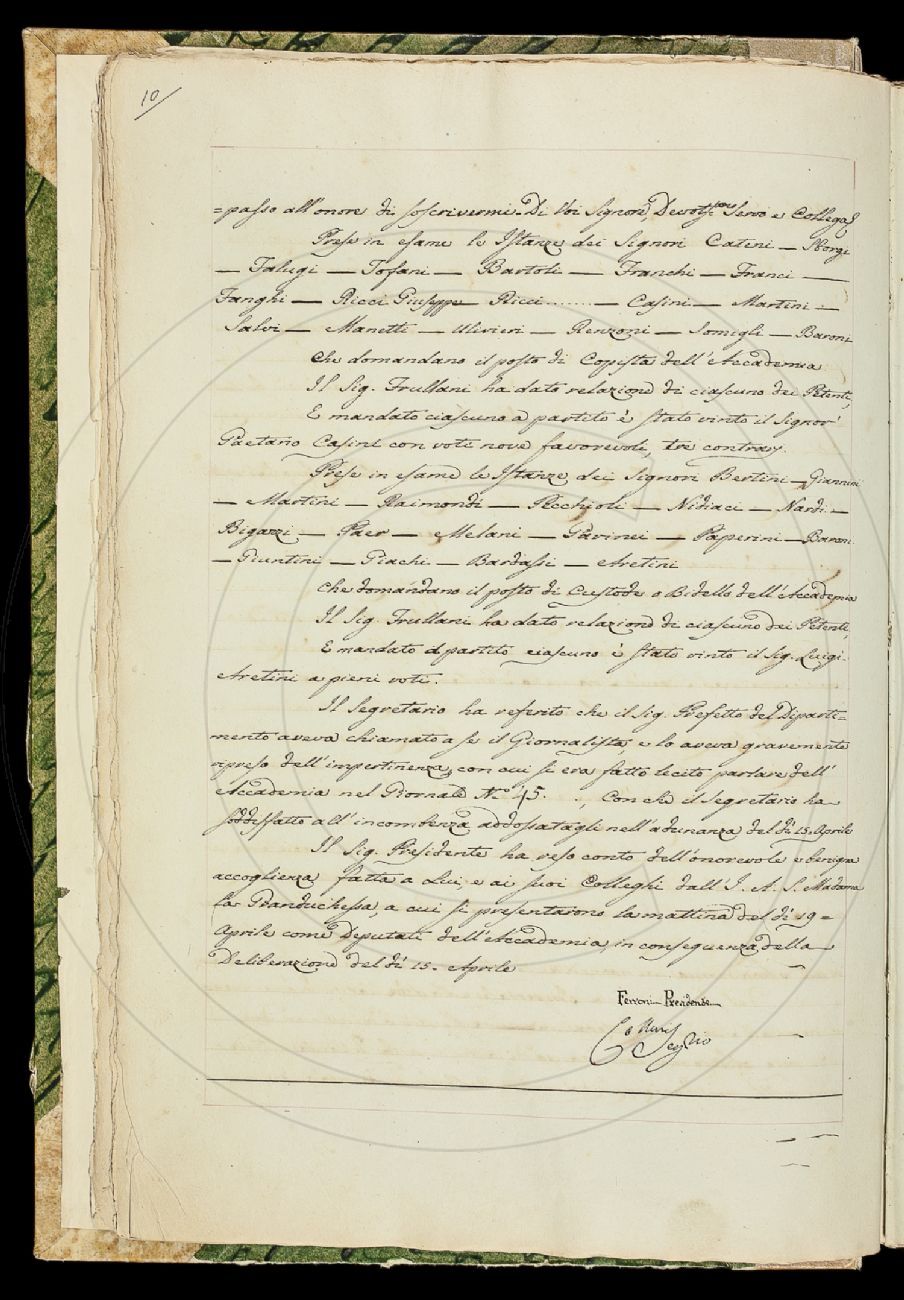 10
=passo all'onore di soscrivermi Di Voi Signori Devotis.mo Servo e Collega
Prese in esame le Istanze dei Signori Catini — Sborgi
— Falugi — Tofani — Bartoli — Franchi — Franci —
Fanghi — Ricci Giuseppe — Ricci ........ — Casini — Martini —
Salvi — Manetti — Ulivieri — Renzoni — Somigli — Baroni
che domandano il posto di Copista dell'Accademia
Il Sig. Frullani ha dato relazione di ciascuno dei Petenti,
E mandato ciascuno a partito è stato vinto il Signor
Gaetano Casini con voti nove favorevoli, tre contrarj.
Prese in esame le Istanze dei Signori Bertini — Giannini
— Martini — Raimondi — Picchioli — Nidiaci — Nardi —
Bigazzi — Paer — Melani — Gavinei — Paperini — Baroni
— Giuntini — Giachi — Bardassi — Aretini
che domandano il posto di Custode o Bidello dell'Accademia
Il Sig. Frullani ha dato relazione di ciascuno dei Petenti,
E mandato a partito ciascuno è stato vinto il Sig. Luigi
Aretini a pieni voti.
Il Segretario ha referito che il Sig. Prefetto del Diparti=
mento aveva chiamato a se il Giornalista, e lo aveva gravemente
ripreso dell'impertinenza, con cui si era fatto lecito parlare dell'
Accademia nel Giornale N.º 45. , Con che il Segretario ha
soddisfatto all'incombenza addossatagli nell'adunanza del dì 15. Aprile
Il Sig. Presidente ha reso conto dell'onorevole e benigna
accoglienza fatta a Lui, e ai suoi Colleghi dall'I. A. S. Madama
la Granduchessa, a cui si presentarono la mattina del dì 19=
Aprile come Deputati dell'Accademia, in conseguenza della
Deliberazione del dì 15. Aprile
Ferroni Presidente
Seg.rio